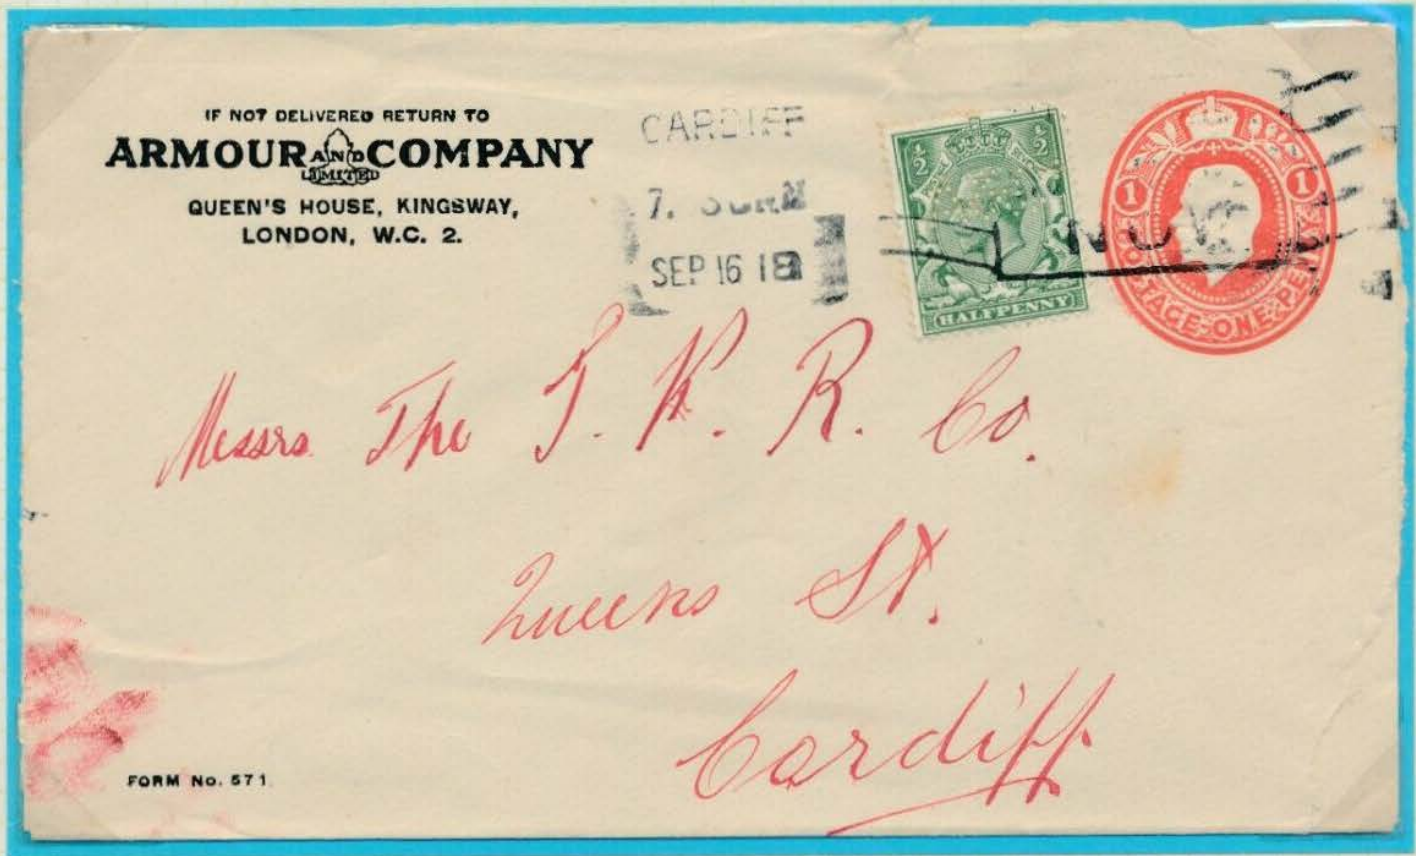 IF NOT DELIVERED RETURN TO
ARMOUR AND COMPANY
LIMITED
QUEEN'S HOUSE, KINGSWAY,
LONDON, W.C. 2.
CARDIFF
7.
SEP 16 18
½ ½
HALFPENNY
1 1
POSTAGE ONE PENNY
Messrs The T. V. R. Co.
Queens St.
Cardiff
FORM No. 571.